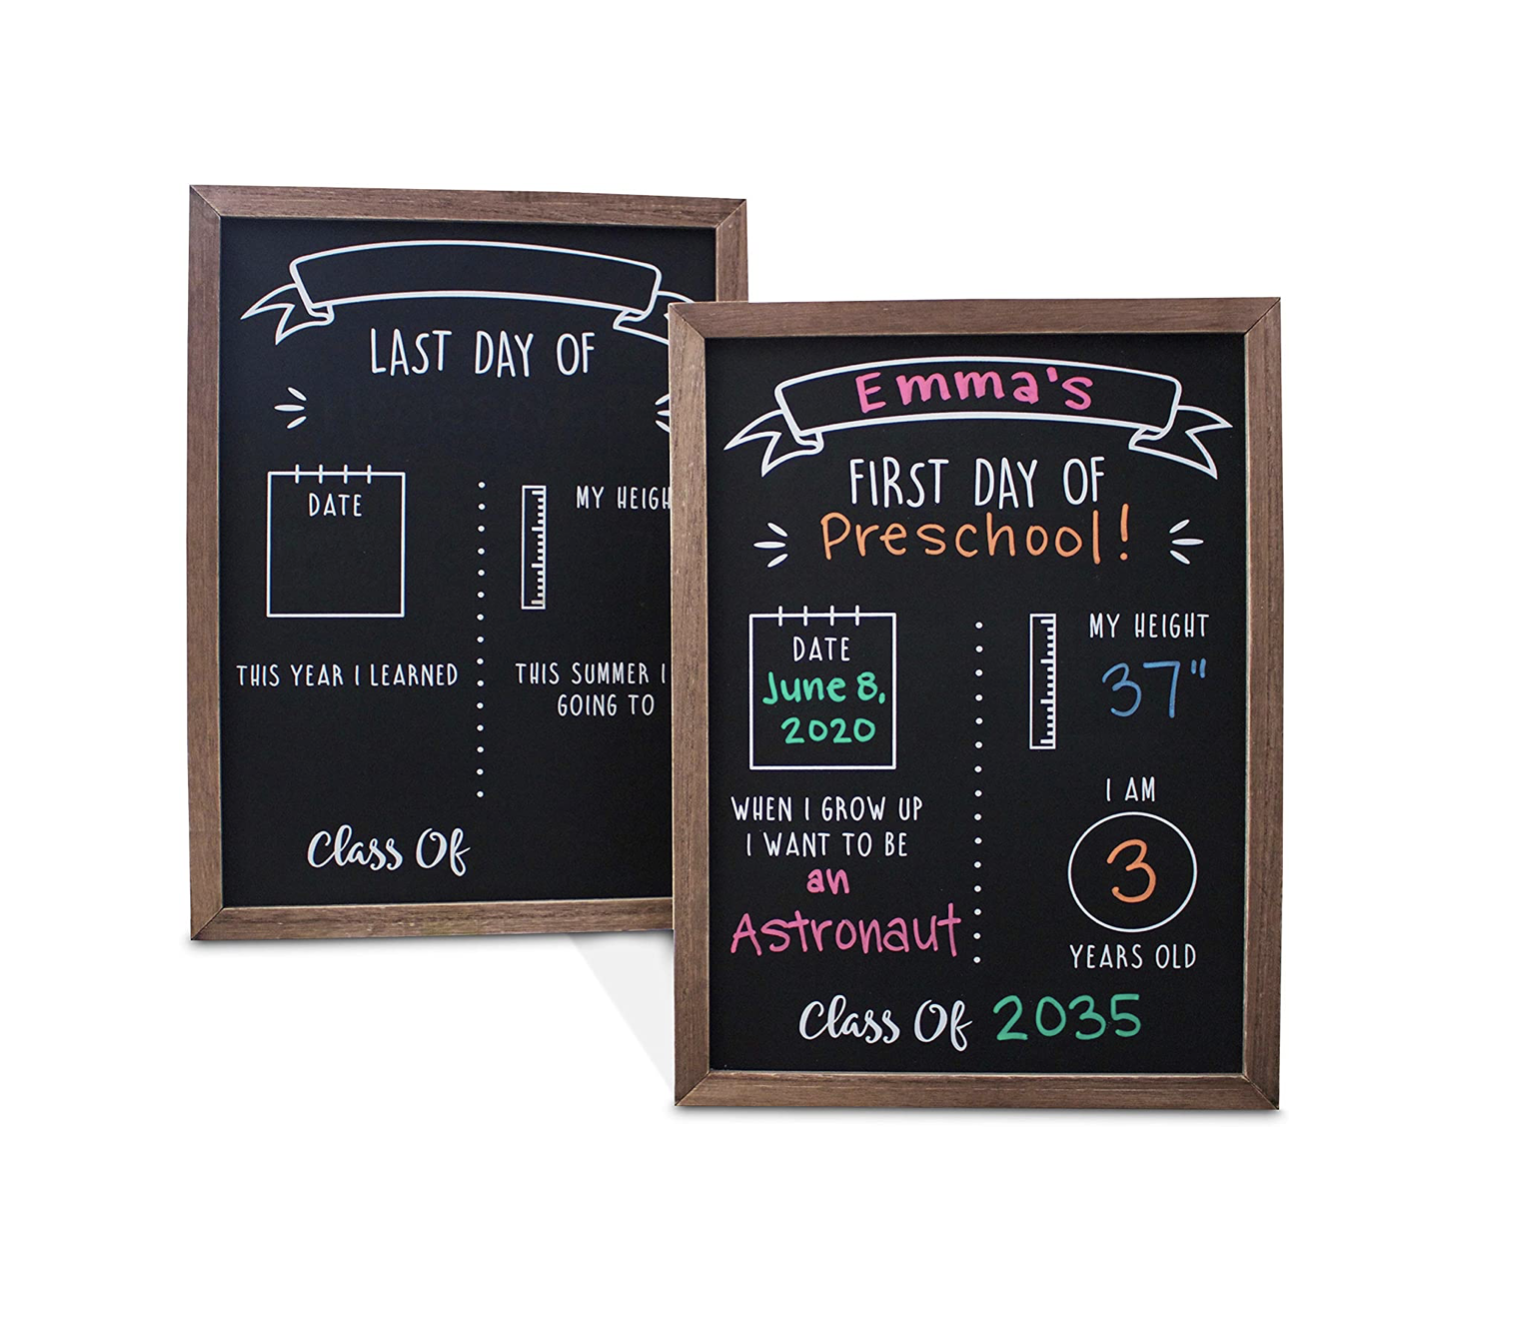 LAST DAY OF
DATE
MY HEIGH
THIS YEAR I LEARNED
THIS SUMMER I
GOING TO
Class Of
Emma's
FIRST DAY OF
Preschool!
DATE
June 8,
2020
MY HEIGHT
37"
WHEN I GROW UP
I WANT TO BE
an
Astronaut
I AM
3
YEARS OLD
Class Of 2035